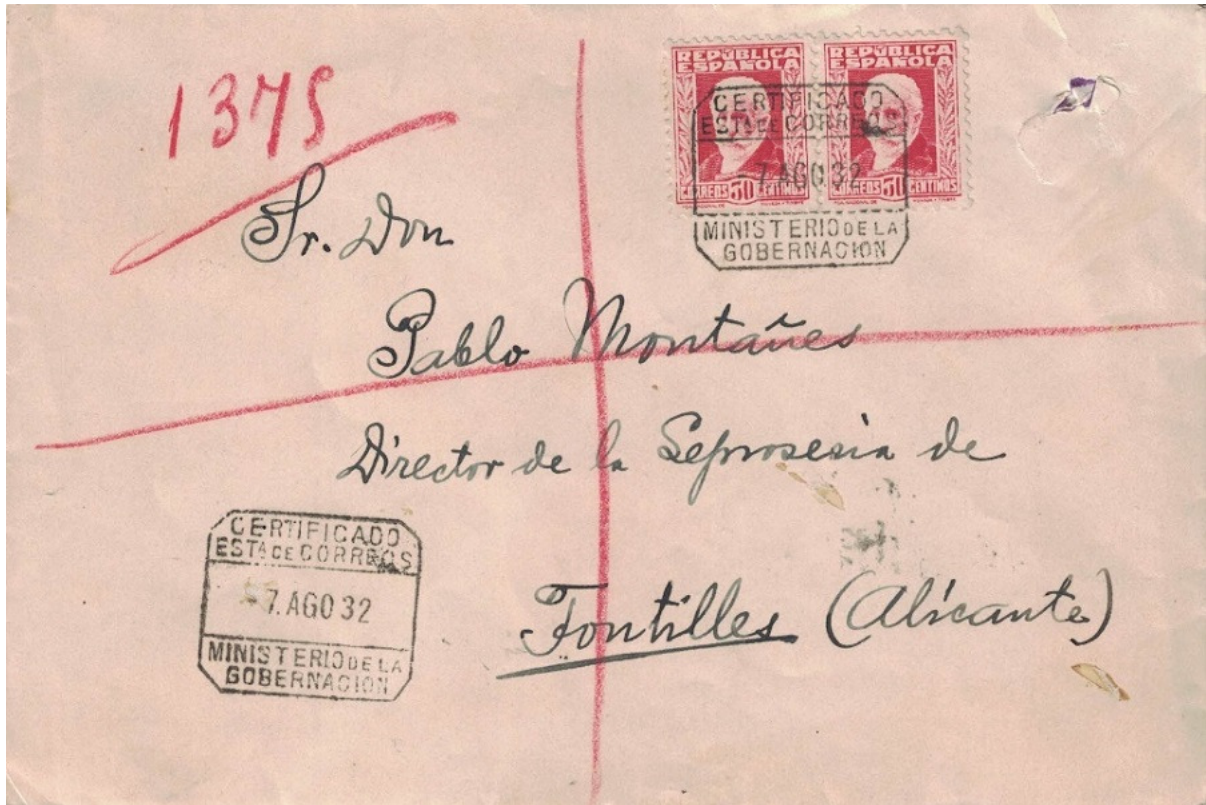 1375
REPÚBLICA ESPAÑOLA
CORREOS 50 CENTIMOS
REPÚBLICA ESPAÑOLA
CORREOS 50 CENTIMOS
CERTIFICADO
ESTA DE CORREOS
-7.AGO 32
MINISTERIO DE LA
GOBERNACION
Sr. Don
Pablo Montañes
Director de la Leprosería de
Fontilles (Alicante)
CERTIFICADO
ESTA DE CORREOS
-7.AGO 32
MINISTERIO DE LA
GOBERNACION